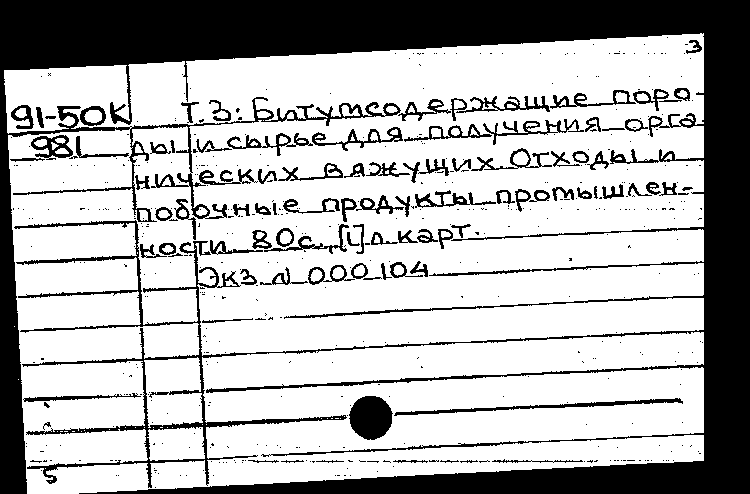 3
91-50К Т.3: Битумсодержащие поро-
981 ды и сырье для получения орга-
нических вяжущих. Отходы и
побочные продукты промышлен-
ности. 80с., [1]л.карт.
Экз. N 000104
5